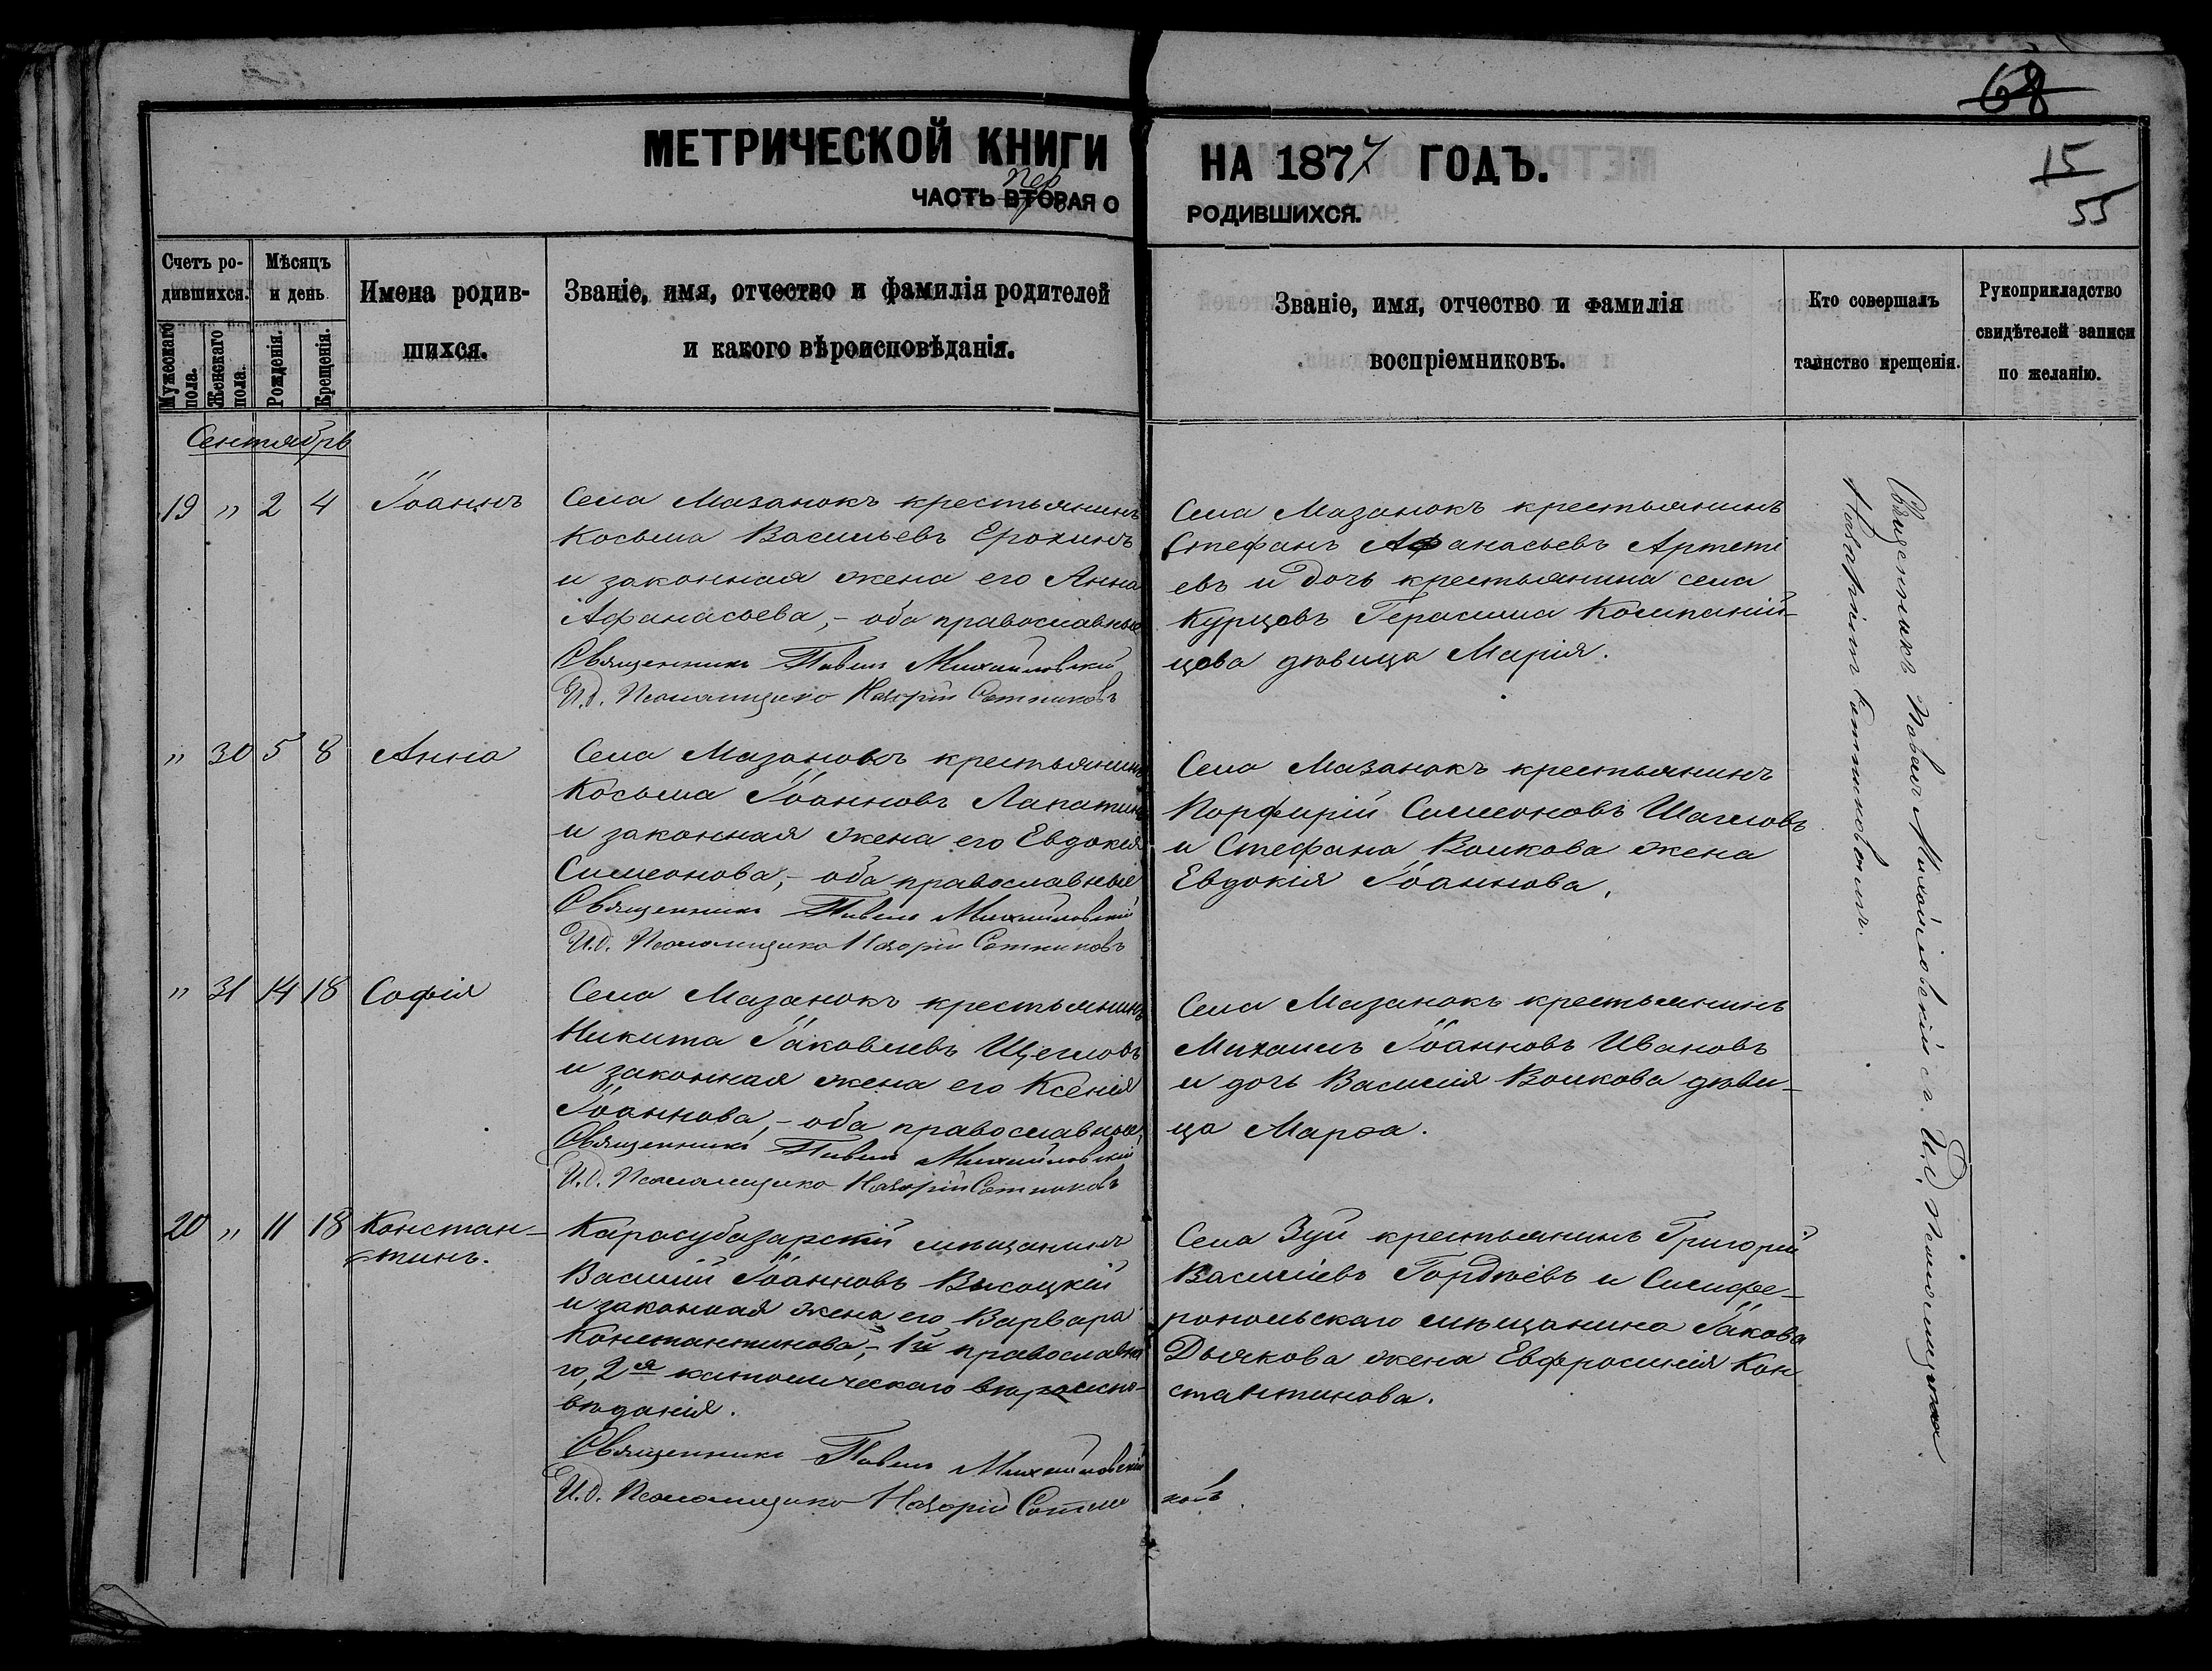 68
15
55
МЕТРИЧЕСКОЙ КНИГИ НА 1877 ГОДЪ.
пер
ЧАСТЬ ВТОРАЯ О РОДИВШИХСЯ.
Счетъ родившихся.
Мужескаго пола.
Женскаго пола.
Мѣсяцъ и день
Рожденія.
Крещенія.
Имена родившихся.
Званіе, имя, отчество и фамилія родителей
и какого вѣроисповѣданія.
Званіе, имя, отчество и фамилія
воспріемниковъ.
Кто совершалъ
таинство крещенія.
Рукоприкладство
свидѣтелей записи
по желанію.
Сентябрь
19 " 2 4 Іоаннъ
Села Мазанокъ крестьянинъ
Косьма Васильевъ Ерохинъ
и законная жена его Анна
Афанасьева,- оба православные
Священникъ Павелъ Михайловскій
И.д. Псаломщика Назарій Сотниковъ
Села Мазанокъ крестьянинъ
Стефанъ Афанасьевъ Артеті
евъ и дочь крестьянина села
Курцовъ Герасима Компаній-
цова дѣвица Марія.
" 30 5 8 Анна
Села Мазанокъ крестьянинъ
Косьма Іоанновъ Лапатинъ
и законная жена его Евдокія
Симеонова,- оба православные
Священникъ Павелъ Михайловскій
И.д. Псаломщика Назарій Сотниковъ
Села Мазанокъ крестьянинъ
Порфирій Симеоновъ Шагловъ
и Стефана Волкова жена
Евдокія Іоаннова.
" 31 14 18 Софія
Села Мазанокъ крестьянинъ
Никита Іаковлевъ Щегловъ
и законная жена его Ксенія
Іоаннова,- оба православные
Священникъ Павелъ Михайловскій
И.д. Псаломщика Назарій Сотниковъ
Села Мазанокъ крестьянинъ
Михаилъ Іоанновъ Ивановъ
и дочь Василія Волкова дѣви-
ца Марѳа.
20 " 11 18 Констан-
тинъ.
Карасубазарскій мѣщанинъ
Василій Іоанновъ Высоцкій
и законная жена его Варвара
Константинова,- 1й православна
го, 2я католическаго вѣроиспо-
вѣданія.
Священникъ Павелъ Михайловскій
И.д. Псаломщика Назарій Сотни ковъ
Села Зуи крестьянинъ Григорій
Василіевъ Гордѣевъ и Симфе-
ропольскаго мѣщанина Іакова
Дьякова жена Евфросинія Кон
стантинова.
Священникъ Павелъ Михайловскій съ И.д. Псаломщика
Назаріемъ Сотниковымъ.